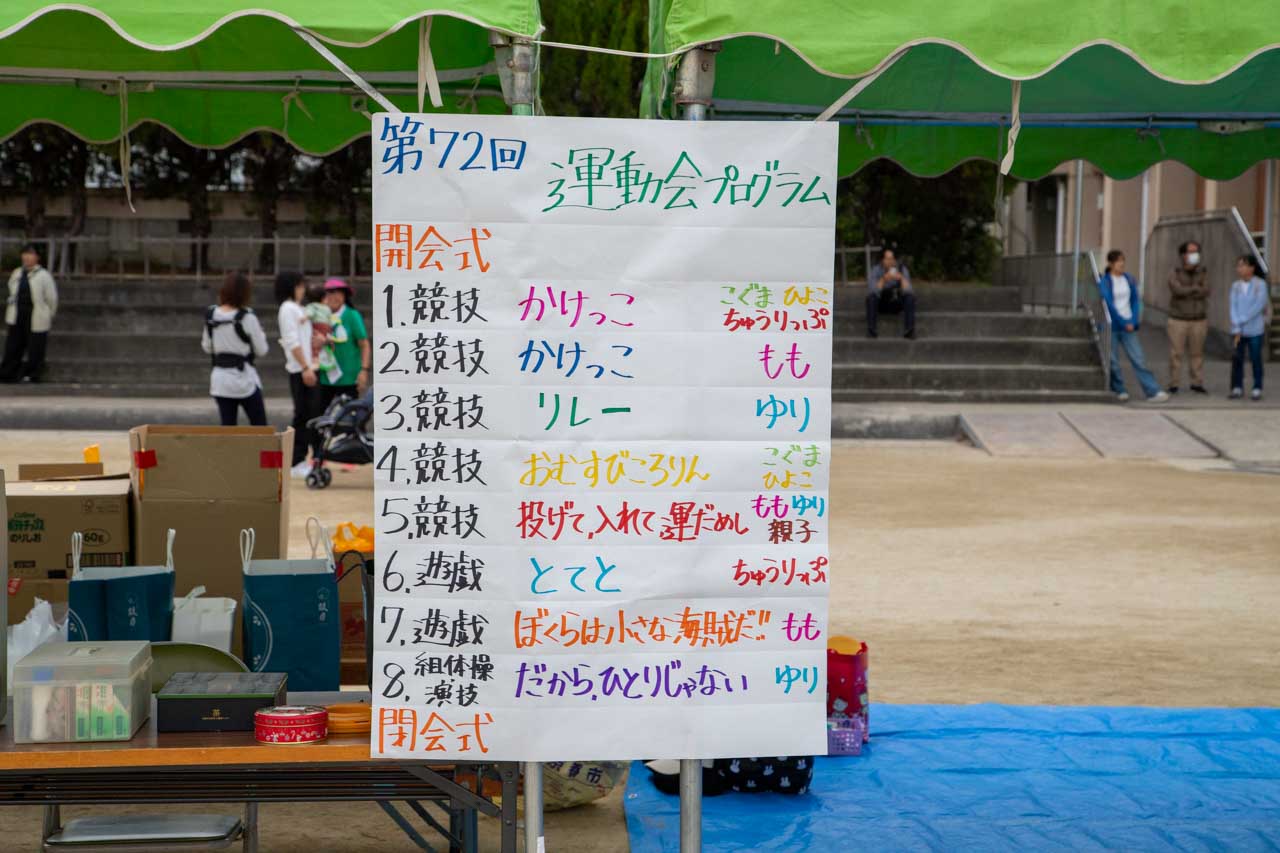 第72回
運動会プログラム
開会式
1.競技 かけっこ こぐま ひよこ
ちゅうりっぷ
2.競技 かけっこ もも
3.競技 リレー ゆり
4.競技 おむすびころりん こぐま
ひよこ
5.競技 投げて,入れて運だめし もも ゆり
親子
6.遊戯 とてと ちゅうりっぷ
7.遊戯 ぼくらは小さな海賊だ!! もも
8.組体操
演技 だから,ひとりじゃない ゆり
閉会式
Calbee
ポテトチップス
のりしお
60g
茶